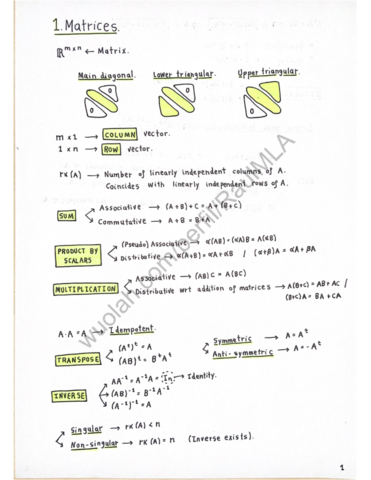 1. Matrices.
ℝ^(m×n) ← Matrix.
Main diagonal. Lower triangular. Upper triangular.
0 0 0 0
m×1 → COLUMN vector.
1×n → ROW vector.
rK(A) → Number of linearly independent columns of A.
Coincides with linearly independent rows of A.
SUM
Associative → (A+B)+C = A+(B+C)
Commutative → A+B = B+A
PRODUCT BY SCALARS
(Pseudo) Associative → α(AB)=(αA)B = A(αB)
Distributive → α(A+B) = αA+αB / (α+β)A = αA + βA
MULTIPLICATION
Associative → (AB)C = A(BC)
Distributive wrt addition of matrices → A(B+C) = AB + AC /
(B+C)A = BA + CA
A·A = A → Idempotent.
TRANSPOSE
(Aᵗ)ᵗ = A
(AB)ᵗ = BᵗAᵗ
Symmetric → A = Aᵗ
Anti-symmetric → A = -Aᵗ
INVERSE
AA⁻¹ = A⁻¹A = In → Identity.
(AB)⁻¹ = B⁻¹A⁻¹
(A⁻¹)⁻¹ = A
Singular → rK(A) < n
Non-singular → rK(A) = n (Inverse exists).
1